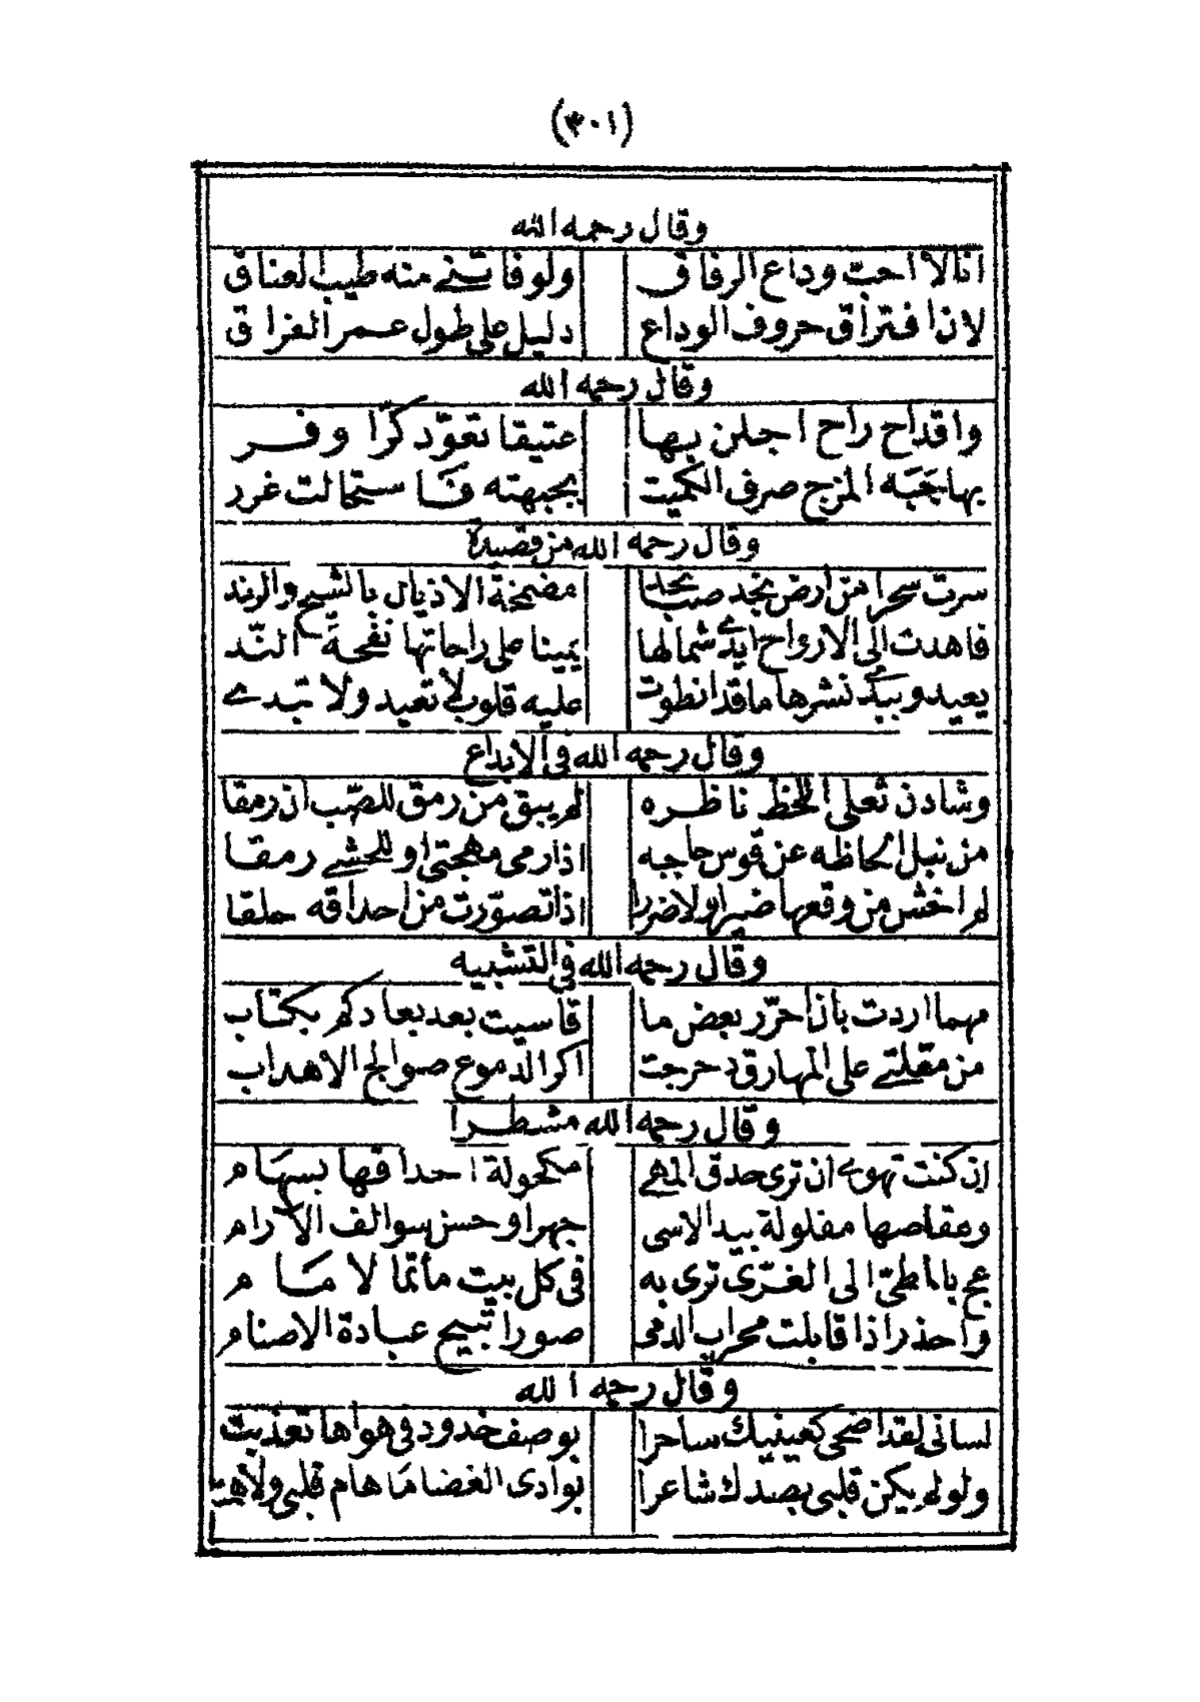 (٣٠١)
وقال رحمه الله
انا لا احب وداع الرفاق ولو فاتني منه طيب العناق
لان افتراق حروف الوداع دليل على طول عمر الفراق
وقال رحمه الله
واقداح راح اجلن بها عتيقا تعوّد كرّا وفر
بها جَبَه المزج صرف الكميت بجبهته فاستحالت غرر
وقال رحمه الله من قصيدة
سرت سحرا من ارض نجد صبا نجد مضمخة الاذيال بالشيح والرند
فاهدت الى الارواح ايدي شمالها يمينا على راحاتها نفحة النّد
يعيد ويبدي نشرها ما قد انطوت عليه قلوب لا تعيد ولا تبدي
وقال رحمه الله في الابداع
وشادن ثعلي اللحظ ناظره لم يبق من رمق للصّب ان رمقا
من نبل الحاظه عن قوس حاجبه اذا رمى مهجتي او للحشي رمقا
لم اخش من وقعها ضيرا ولا ضررا اذا تصوّرت من احداقه حلقا
وقال رحمه الله في التشبيه
مهما اردت بان احرّر بعض ما قاسيت بعد بعادكم بكتاب
من مقلتي على المهارق دحرجت اكر الدموع صوالج الاهداب
وقال رحمه الله مشطرا
ان كنت تهوي ان ترى حدق المهي مكحولة احداقها بسهام
وعقاصها مغلولة بيد الاسى جهرا وحسن سوالف الآرام
عج يا مطيّ الى الغرّى ترى به في كل بيت مأتما لا مام
واحذر اذا قابلت محراب الدمى صورا تبيح عبادة الاصنام
وقال رحمه الله
لساني لقد اضحى كعينيك ساحرا بوصف خدود في هواها تعذبت
ولو لم يكن قلبي بصدك شاعرا بوادى الغضا ما هام قلبي ولا